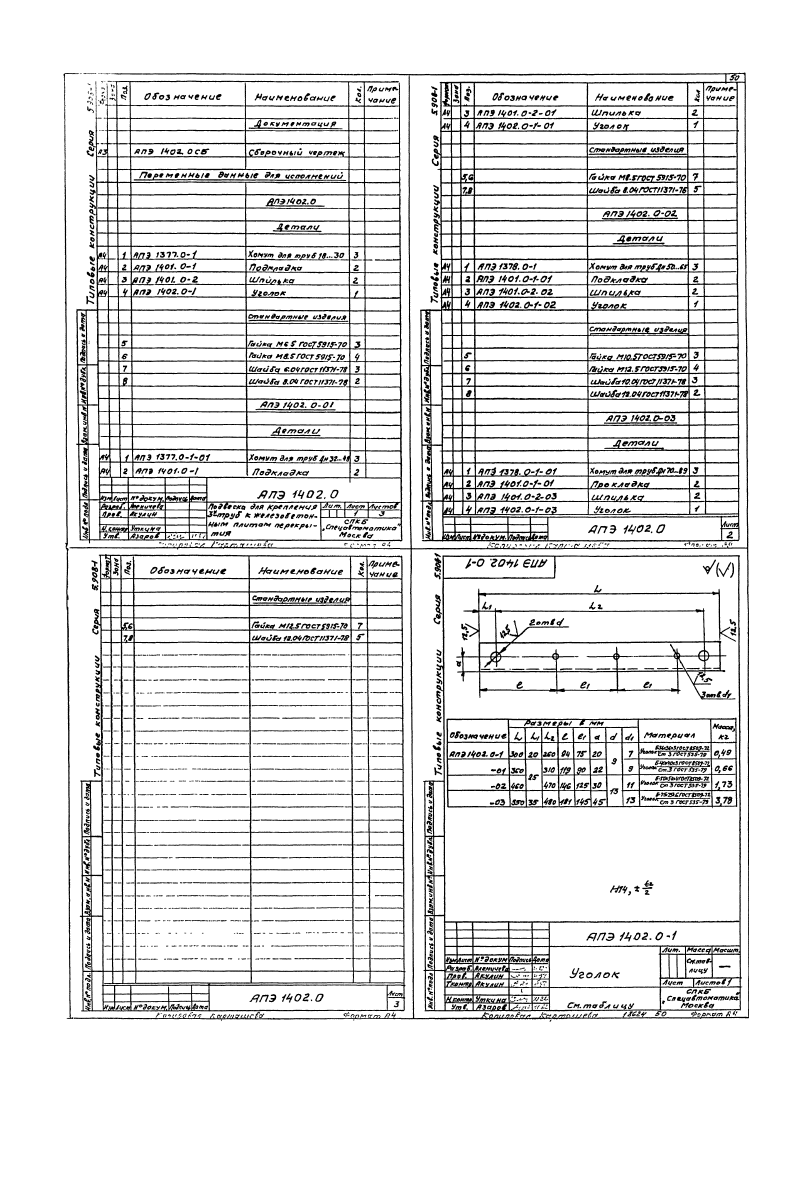 50
Типовые конструкции Серия 5.908-1
Поз. Обозначение Наименование Кол. Приме-
чание
Документация
А3 АПЭ 1402.0СБ Сборочный чертеж
Переменные данные для исполнений
АПЭ1402.0
Детали
А4 1 АПЭ 1377.0-1 Хомут для труб 18...30 3
А4 2 АПЭ 1401.0-1 Подкладка 2
А4 3 АПЭ 1401.0-2 Шпилька 2
А4 4 АПЭ 1402.0-1 Уголок 1
Стандартные изделия
5 Гайка М6.5 ГОСТ 5915-70 3
6 Гайка М8.5 ГОСТ 5915-70 4
7 Шайба 6.04 ГОСТ 11371-78 3
8 Шайба 8.04 ГОСТ 11371-78 2
АПЭ 1402.0-01
Детали
А4 1 АПЭ 1377.0-1-01 Хомут для труб Дн32...48 3
А4 2 АПЭ 1401.0-1 Подкладка 2
АПЭ 1402.0
Изм Лист №докум. Подпись Дата
Разраб. Аленичева
Пров. Акулин
Н.контр. Уткина
Утв. Азаров
Подвеска для крепления
3-труб к железобетон-
ным плитам перекры-
тия
Лит. Лист Листов
1 3
СПКБ
„Спецавтоматика"
Москва
Инв.№подл. Подпись и дата Взам.инв.№ Инв.№дубл. Подпись и дата
Типовые конструкции Серия 5.908-1
Формат Зона Поз. Обозначение Наименование Кол Приме-
чание
А4 3 АПЭ 1401.0-2-01 Шпилька 2
А4 4 АПЭ 1402.0-1-01 Уголок 1
Стандартные изделия
5,6 Гайка М8.5 ГОСТ 5915-70 7
7,8 Шайба 8.04 ГОСТ 11371-78 5
АПЭ 1402.0-02
Детали
А4 1 АПЭ 1378.0-1 Хомут для труб Дн 50...65 3
А4 2 АПЭ 1401.0-1-01 Подкладка 2
А4 3 АПЭ 1401.0-2-02 Шпилька 2
А4 4 АПЭ 1402.0-1-02 Уголок 1
Стандартные изделия
5 Гайка М10.5 ГОСТ 5915-70 3
6 Гайка М12.5 ГОСТ 5915-70 4
7 Шайба 10.04 ГОСТ 11371-78 3
8 Шайба 12.04 ГОСТ 11371-78 2
АПЭ 1402.0-03
Детали
А4 1 АПЭ 1378.0-1-01 Хомут для труб Дн70...89 3
А4 2 АПЭ 1401.0-1-01 Прокладка 2
А4 3 АПЭ 1401.0-2-03 Шпилька 2
А4 4 АПЭ 1402.0-1-03 Уголок 1
Изм Лист №докум. Подпись Дата
АПЭ 1402.0
Лист
2
Типовые конструкции Серия 5.908-1
Формат Зона Поз. Обозначение Наименование Кол. Приме-
чание
Стандартные изделия
5,6 Гайка М12.5 ГОСТ 5915-70 7
7,8 Шайба 12.04 ГОСТ 11371-78 5
Инв.№подл. Подпись и дата Взам.инв.№ Инв.№дубл. Подпись и дата
Изм Лист №докум. Подпись Дата
АПЭ 1402.0
Лист
3
Копировал Карташева Формат А4
Типовые конструкции Серия 5.908-1
АПЭ 1402.0-1
√(√)
L
L1 L2
2отв d
12,5 12,5 12,5
а
ℓ ℓ1 ℓ1
3отв d1
Обозначение Размеры в мм Материал Масса,
кг
L L1 L2 ℓ ℓ1 а d d1
АПЭ 1402.0-1 300 20 260 94 75 20 9 7 Уголок Ст 3 ГОСТ 535-79 0,49
-01 360 25 310 119 90 22 9 Уголок Ст 3 ГОСТ 535-79 0,66
-02 460 470 146 125 30 13 11 Уголок Ст 3 ГОСТ 535-79 1,73
-03 550 35 480 181 145 45 13 Уголок Ст 3 ГОСТ 535-79 3,79
H14, ± t2/2
АПЭ 1402.0-1
Изм Лист №докум Подпись Дата
Разраб. Аленичева
Пров. Акулин
Т.контр. Акулин
Н.контр. Уткина
Утв. Азаров
Уголок
См.таблицу
Лит. Масса Масшт.
См.таб-
лицу —
Лист Листов 1
СПКБ
„Спецавтоматика"
Москва
Копировал Карташева 18624 50 Формат А4